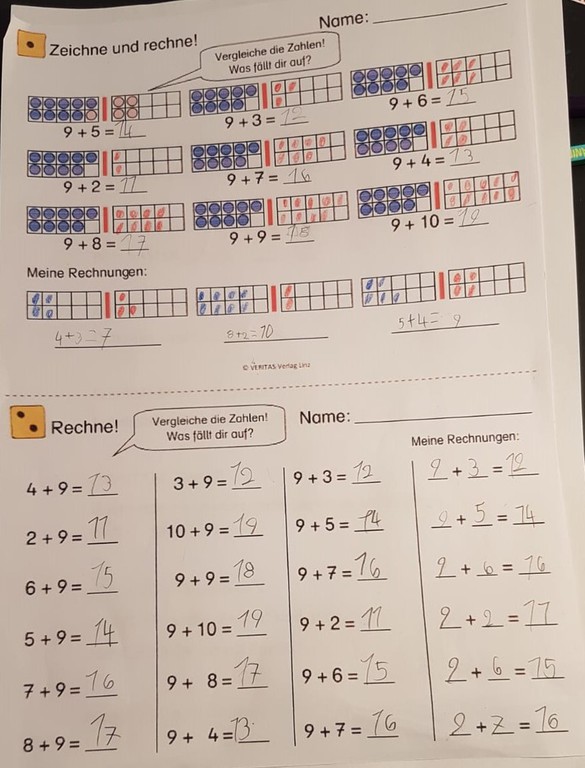 Name:
Zeichne und rechne!
Vergleiche die Zahlen!
Was fällt dir auf?
9 + 5 = 14
9 + 3 = 12
9 + 6 = 15
9 + 2 = 11
9 + 7 = 16
9 + 4 = 13
9 + 8 = 17
9 + 9 = 18
9 + 10 = 19
Meine Rechnungen:
4+3=7
8+2=10
5+4= 9
© VERITAS Verlag Linz
Rechne!
Vergleiche die Zahlen!
Was fällt dir auf?
Name:
Meine Rechnungen:
4 + 9 = 13
3 + 9 = 12
9 + 3 = 12
9 + 3 = 12
2 + 9 = 11
10 + 9 = 19
9 + 5 = 14
9 + 5 = 14
6 + 9 = 15
9 + 9 = 18
9 + 7 = 16
9 + 6 = 16
5 + 9 = 14
9 + 10 = 19
9 + 2 = 11
9 + 2 = 11
7 + 9 = 16
9 + 8 = 17
9 + 6 = 15
9 + 6 = 15
8 + 9 = 17
9 + 4 = 13
9 + 7 = 16
9 + 7 = 16